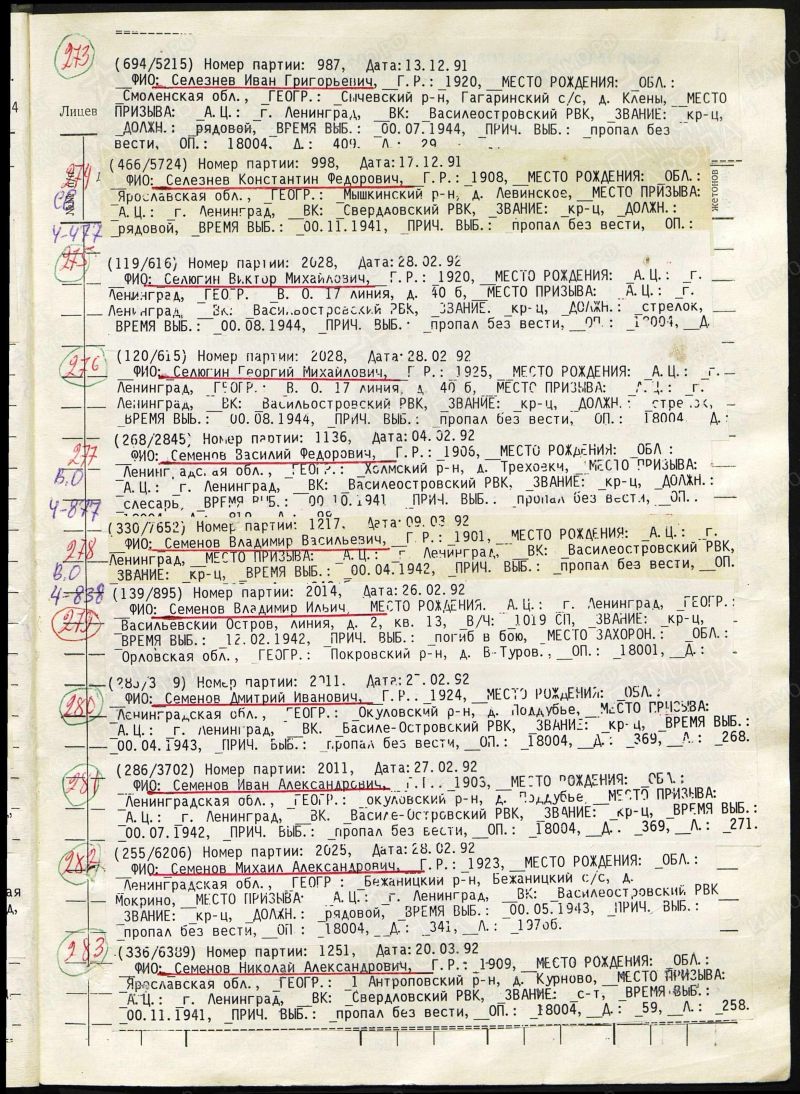 273
(694/5215) Номер партии: 987, Дата:13.12.91
ФИО:_Селезнев Иван Григорьевич,_Г.Р.:_1920,__МЕСТО РОЖДЕНИЯ:_ОБЛ.:
Лицев
_Смоленская обл.,_ГЕОГР.:_Сычевский р-н, Гагаринский с/с, д. Клены,__МЕСТО
ПРИЗЫВА:_А.Ц.:_г. Ленинград,__ВК: Василеостровский РВК,_ЗВАНИЕ:_кр-ц,
_ДОЛЖН.:_рядовой,_ВРЕМЯ ВЫБ.:_00.07.1944,_ПРИЧ. ВЫБ.:_пропал без
вести,_ОП.:_18004,_Д.:_409,_Л.:_29
274
(466/5724) Номер партии: 998, Дата:17.12.91
ФИО:_Селезнев Константин Федорович,_Г.Р.:_1908,__МЕСТО РОЖДЕНИЯ:_ОБЛ.:
Ярославская обл.,_ГЕОГР.:_Мышкинский р-н, д. Левинское,__МЕСТО ПРИЗЫВА:
_А.Ц.:_г. Ленинград,_ВК: Свердловский РВК,_ЗВАНИЕ:_кр-ц,_ДОЛЖН.:
_рядовой,_ВРЕМЯ ВЫБ.:_00.11.1941,_ПРИЧ. ВЫБ.:_пропал без вести,_ОП.:
жетонов
4-477
275
(119/616) Номер партии: 2028, Дата:28.02.92
ФИО:_Селюгин Виктор Михайлович,_Г.Р.:_1920,__МЕСТО РОЖДЕНИЯ:_А.Ц.:_г.
Ленинград,_ГЕОГР._В. О. 17 линия, д. 40 б,__МЕСТО ПРИЗЫВА:_А.Ц.:_г.
Ленинград,_ВК:_Васильостровский РВК,_ЗВАНИЕ._кр-ц,_ДОЛЖН.:_стрелок,
ВРЕМЯ ВЫБ.:_00.08.1944,_ПРИЧ. ВЫБ.:_пропал без вести,_ОП.:_18004,_Д
276
(120/615) Номер партии: 2028, Дата:28.02.92
ФИО:_Селюгин Георгий Михайлович,_Г.Р.:_1925,_МЕСТО РОЖДЕНИЯ:_А.Ц.:_г.
Ленинград,_ГЕОГР.:_В. О. 17 линия, д. 40 б,_МЕСТО ПРИЗЫВА:_А.Ц.:_г.
Ленинград,_ВК:_Васильостровский РВК,_ЗВАНИЕ:_кр-ц,_ДОЛЖН.:_стрелок,
_ВРЕМЯ ВЫБ.:_00.08.1944,_ПРИЧ. ВЫБ.:_пропал без вести,_ОП.:_18004_Д.:
277
(268/2845) Номер партии: 1136, Дата:04.02.92
ФИО:_Семенов Василий Федорович,_Г.Р.:_1906,_МЕСТО РОЖДЕНИЯ:_ОБЛ.:
В.О
Ленинградская обл.,_ГЕОГР.:_Холмский р-н, д. Треховки,_МЕСТО ПРИЗЫВА:
_А.Ц.:_г. Ленинград,_ВК: Василеостровский РВК,_ЗВАНИЕ:_кр-ц,_ДОЛЖН.:
4-877
_слесарь,_ВРЕМЯ ВЫБ.:_00.10.1941_ПРИЧ. ВЫБ.:_пропал без вести,_ОП..
(330/7652) Номер партии: 1217, Дата:09.03.92
278
ФИО:_Семенов Владимир Васильевич,_Г.Р.:_1901,_МЕСТО РОЖДЕНИЯ:_А.Ц.:_г.
Ленинград,_МЕСТО ПРИЗЫВА:_А.Ц.:_г. Ленинград,_ВК: Василеостровский РВК,
В.О
ЗВАНИЕ:_кр-ц,_ВРЕМЯ ВЫБ.:_00.04.1942,_ПРИЧ. ВЫБ.:_пропал без вести,__ОП.
4-838
(139/895) Номер партии: 2014, Дата:26.02.92
279
ФИО:_Семенов Владимир Ильич,_МЕСТО РОЖДЕНИЯ._А.Ц.:_г. Ленинград,_ГЕОГР.:
Васильевский Остров, линия, д. 2, кв. 13,_В/Ч:_1019 СП,_ЗВАНИЕ:_кр-ц,
_ВРЕМЯ ВЫБ.:_12.02.1942,_ПРИЧ. ВЫБ.:_погиб в бою,_МЕСТО ЗАХОРОН.:_ОБЛ.:
_Орловская обл.,_ГЕОГР.:_Покровский р-н, д. В-Туров.,__ОП.:_18001,_Д.:
280
Номер партии: 2011. Дата:27.02.92
ФИО:_Семенов Дмитрий Иванович,_Г.Р.._1924,_МЕСТО РОЖДЕНИЯ:_ОБЛ.:
_Ленинградская обл.,_ГЕОГР.:_Окуловский р-н, д. Поддубье,__МЕСТО ПРИЗЫВА:
_А.Ц.:_г. Ленинград,_ВК. Василе-Островский РВК,_ЗВАНИЕ:_кр-ц,_ВРЕМЯ ВЫБ.:
_00.04.1943,_ПРИЧ. ВЫБ.:_пропал без вести,_ОП.:_18004,_Д.:_369,_Л.:_268.
281
(286/3702) Номер партии: 2011, Дата:27.02.92
ФИО:_Семенов Иван Александрович,_Г.Р.:_1903,_МЕСТО РОЖДЕНИЯ:_ОБЛ.:
_Ленинградская обл.,_ГЕОГР.:_Окуловский р-н, д. Поддубье,_МЕСТО ПРИЗЫВА:
_А.Ц.:_г. Ленинград,_ВК._Василе-Островский РВК,_ЗВАНИЕ:_кр-ц,_ВРЕМЯ ВЫБ.:
_00.07.1942,_ПРИЧ. ВЫБ.:_пропал без вести,_ОП.:_18004,__Д.:_369,_Л.:_271.
282
(255/6206) Номер партии: 2025, Дата:28.02.92
ФИО:_Семенов Михаил Александрович,_Г.Р.:_1923,_МЕСТО РОЖДЕНИЯ:_ОБЛ.:
_Ленинградская обл.,_ГЕОГР.:_Бежаницкий р-н, Бежаницкий с/с, д.
Мокрино,_МЕСТО ПРИЗЫВА:_А.Ц.:_г. Ленинград,_ВК:_Василеостровский РВК
_ЗВАНИЕ:_кр-ц,_ДОЛЖН.:_рядовой,_ВРЕМЯ ВЫБ.:_00.05.1943,_ПРИЧ. ВЫБ.:
_пропал без вести,_ОП.:_18004,_Д.:_341,_Л.:_197об.
283
(336/6389) Номер партии: 1251, Дата:20.03.92
ФИО:_Семенов Николай Александрович,_Г.Р.:_1909,_МЕСТО РОЖДЕНИЯ:_ОБЛ.:
_Ярославская обл.,_ГЕОГР.:_1 Антроповский р-н, д. Курново,_МЕСТО ПРИЗЫВА:
_А.Ц.:_г. Ленинград,_ВК: Свердловский РВК,_ЗВАНИЕ:_с-т,_ВРЕМЯ ВЫБ.:
_00.11.1941,_ПРИЧ. ВЫБ.:_пропал без вести,_ОП.:_18004,_Д.:_59,_Л.:_258.